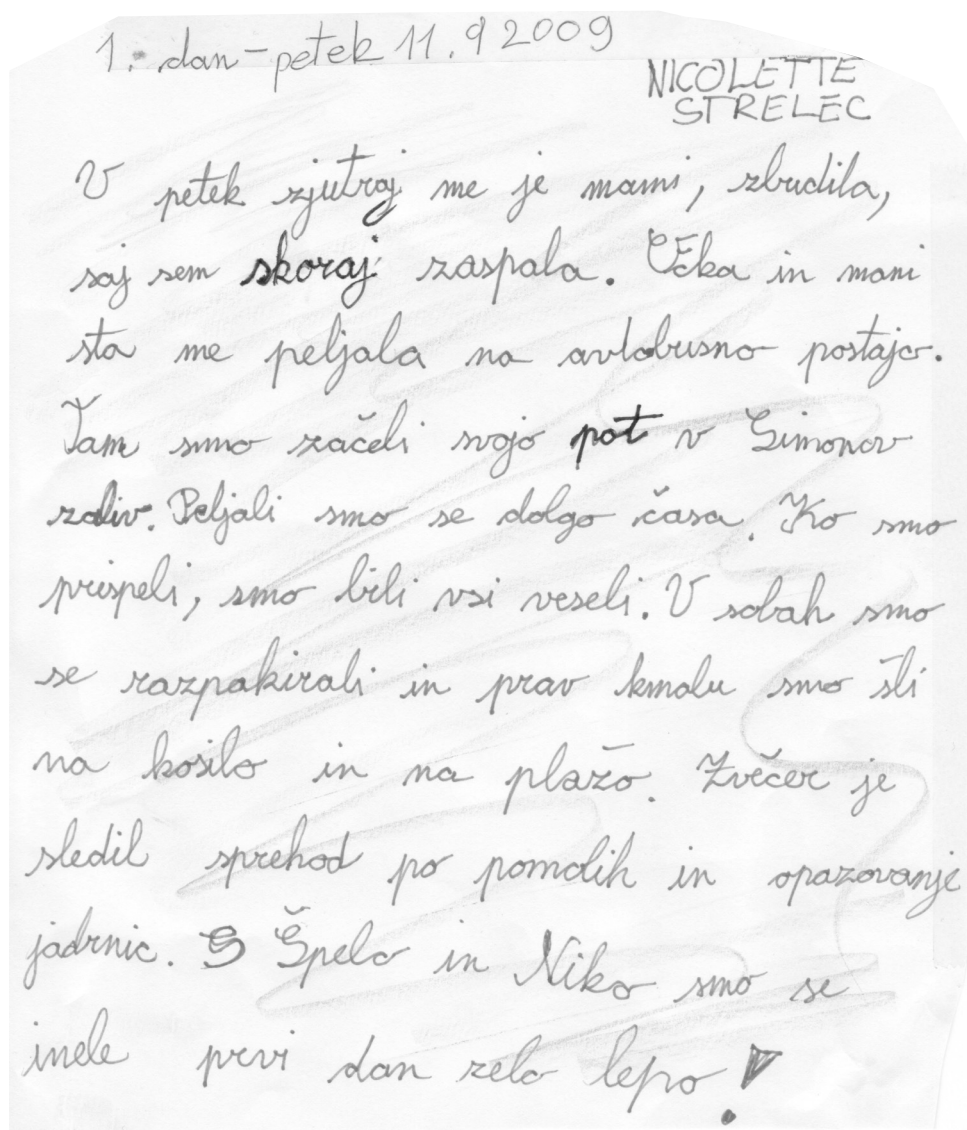 1. dan - petek 11. 9 2009
NICOLETTE
STRELEC
V petek zjutraj me je mami, zbudila,
saj sem skoraj zaspala. Očka in mami
sta me peljala na avtobusno postajo.
Tam smo začeli svojo pot v Simonov
zaliv. Peljali smo se dolgo časa. Ko smo
prispeli, smo bili vsi veseli. V sobah smo
se razpakirali in prav kmalu smo šli
na kosilo in na plažo. Zvečer je
sledil sprehod po pomolih in opazovanje
jadrnic. S Špelo in Niko smo se
imele prvi dan zelo lepo!